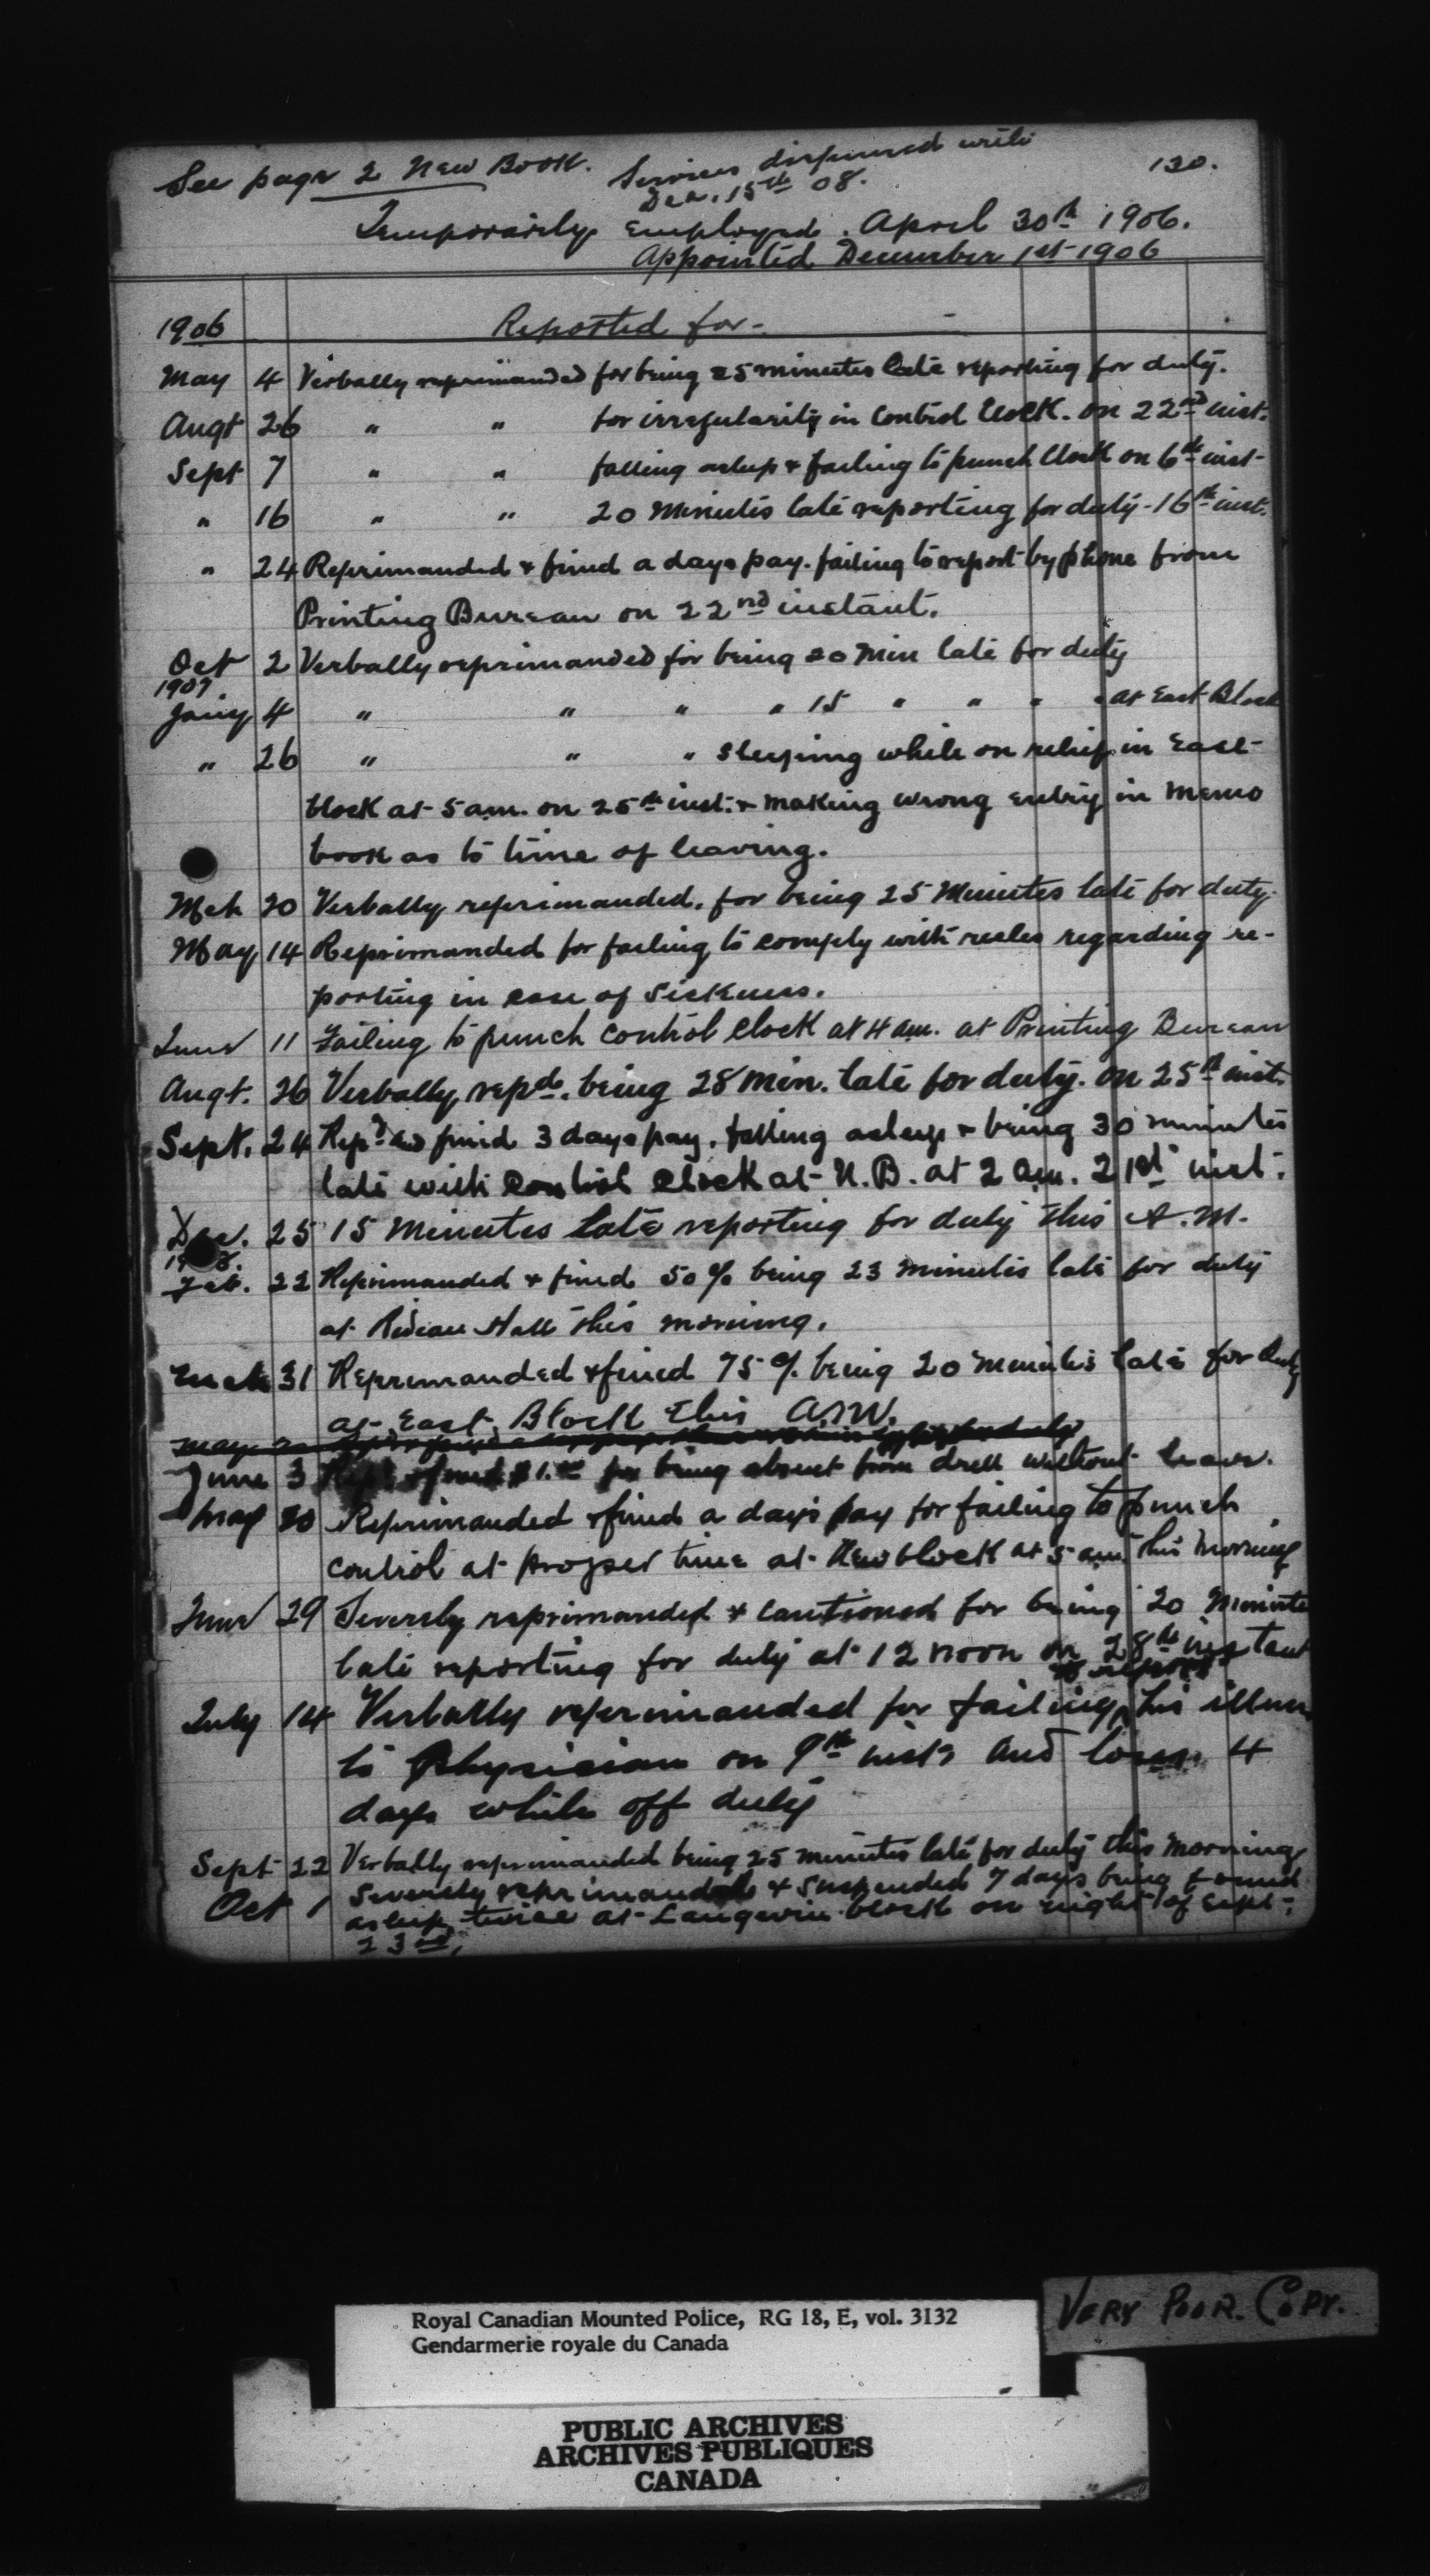 See page 2 New Book. Services dispensed with 130.
Dec. 15th 08.
Temporarily employed. April 30th 1906.
Appointed December 1st 1906
1906 Reported for-
May 4 Verbally reprimanded for being 25 minutes late reporting for duty.
Augt 26 " " for irregularity in Control Clock. on 22nd inst.
Sept 7 " " falling asleep & failing to punch Clock on 6th inst-
" 16 " " 20 Minutes late reporting for duty - 16th inst.
" 24 Reprimanded & fined a days pay. failing to report by phone from
Printing Bureau on 22nd instant.
Oct 2 Verbally reprimanded for being 20 Min late for duty
1907
Jany 4 " " " " 15 " " " " at East Block
" 26 " " " sleeping while on relief in East
block at 5 am. on 25th inst. & making wrong entry in memo
book as to time of leaving.
Mch 20 Verbally reprimanded. for being 25 Minutes late for duty.
May 14 Reprimanded for failing to comply with rules regarding re-
porting in case of sickness.
June 11 Failing to punch control clock at 4 am. at Printing Bureau
Augt. 26 Verbally repd. being 28 min. late for duty. on 25th inst.
Sept. 24 Repd and fined 3 days pay. falling asleep & being 30 minutes
late with control clock at N.B. at 2 am. 21st inst.
Dec. 25 15 Minutes late reporting for duty this A.M.
Feb. 22 Reprimanded & fined 50¢ being 23 minutes late for duty
at Rideau Hall this morning.
March 31 Reprimanded & fined 75¢ being 20 minutes late for duty
at East Block this A.M.
June 3 & fined $1.00 for being absent from drill without leave.
May 20 Reprimanded & fined a days pay for failing to punch
control at proper time at New block at 5 am. this morning
June 29 Severely reprimanded & cautioned for being 20 Minutes
late reporting for duty at 12 noon on 28th instant
to report
July 14 Verbally reprimanded for failing his illness
to Physician on 9th inst and loses 4
days while off duty
Sept 22 Verbally reprimanded being 25 minutes late for duty this morning
Oct 1 Severely reprimanded & suspended 7 days being found
asleep twice at Langevin block on night of Sept.
23rd.
VERY POOR. COPY.
Royal Canadian Mounted Police, RG 18, E, vol. 3132
Gendarmerie royale du Canada
PUBLIC ARCHIVES
ARCHIVES PUBLIQUES
CANADA